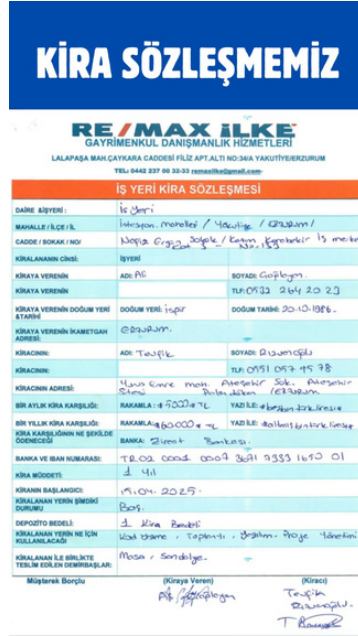 KİRA SÖZLEŞMEMİZ
RE/MAX İLKE
GAYRİMENKUL DANIŞMANLIK HİZMETLERİ
LALAPAŞA MAH.ÇAYKARA CADDESİ FİLİZ APT.ALTI NO:34/A YAKUTİYE/ERZURUM
TEL: 0442 237 00 32-33 remaxilke@gmail.com
İŞ YERİ KİRA SÖZLEŞMESİ
DAİRE &İŞYERİ : İş Yeri
MAHALLE / İLÇE / İL İstasyon mahallesi / Yakutiye / ERZURUM /
CADDE / SOKAK / NO/ Nafiz Sokak / Kazım Karabekir İş merke
KİRALANANIN CİNSİ: İŞYERİ
KİRAYA VERENİN ADI: Ali SOYADI:
KİRAYA VERENİN TLF: 0532 264 20 23
KİRAYA VERENİN DOĞUM YERİ &TARİHİ DOĞUM YERİ: ispir DOĞUM TARİHİ: 20.10.1986.
KİRAYA VERENİN İKAMETGAH ADRESİ: ERZURUM.
KİRACININ: ADI: Tevfik SOYADI:
KİRACININ: TLF: 0551 057 95 78
KİRACININ ADRESİ: Yunus Emre mah. Ateşehir Sok. Ateşehir
Sitesi Palandöken /ERZURUM
BİR AYLIK KİRA KARŞILIĞI: RAKAMLA : #5000# TL YAZI İLE: #beşbintürklirası#
BİR YILLIK KİRA KARŞILIĞI: RAKAMLA: #60000# TL YAZI İLE: #altmışbintürklirası#
KİRA KARŞILIĞININ NE ŞEKİLDE ÖDENECEĞİ BANKA: Ziraat Bankası.
BANKA VE IBAN NUMARASI: TR02 0001 0007 3691 7333 1650 01
KİRA MÜDDETİ: 1 Yıl
KİRANIN BAŞLANGICI: 15.04.2025.
KİRALANAN YERİN ŞİMDİKİ DURUMU Boş.
DEPOZİTO BEDELİ: 1 Kira Bedeli
KİRALANAN YERİN NE İÇİN KULLANILACAĞI Toplantı, Yazılım, Proje Yönetimi
KİRALANAN İLE BİRLİKTE TESLİM EDİLEN DEMİRBAŞLAR: Masa, Sandalye.
Müşterek Borçlu (Kiraya Veren) (Kiracı)
Ali Tevfik